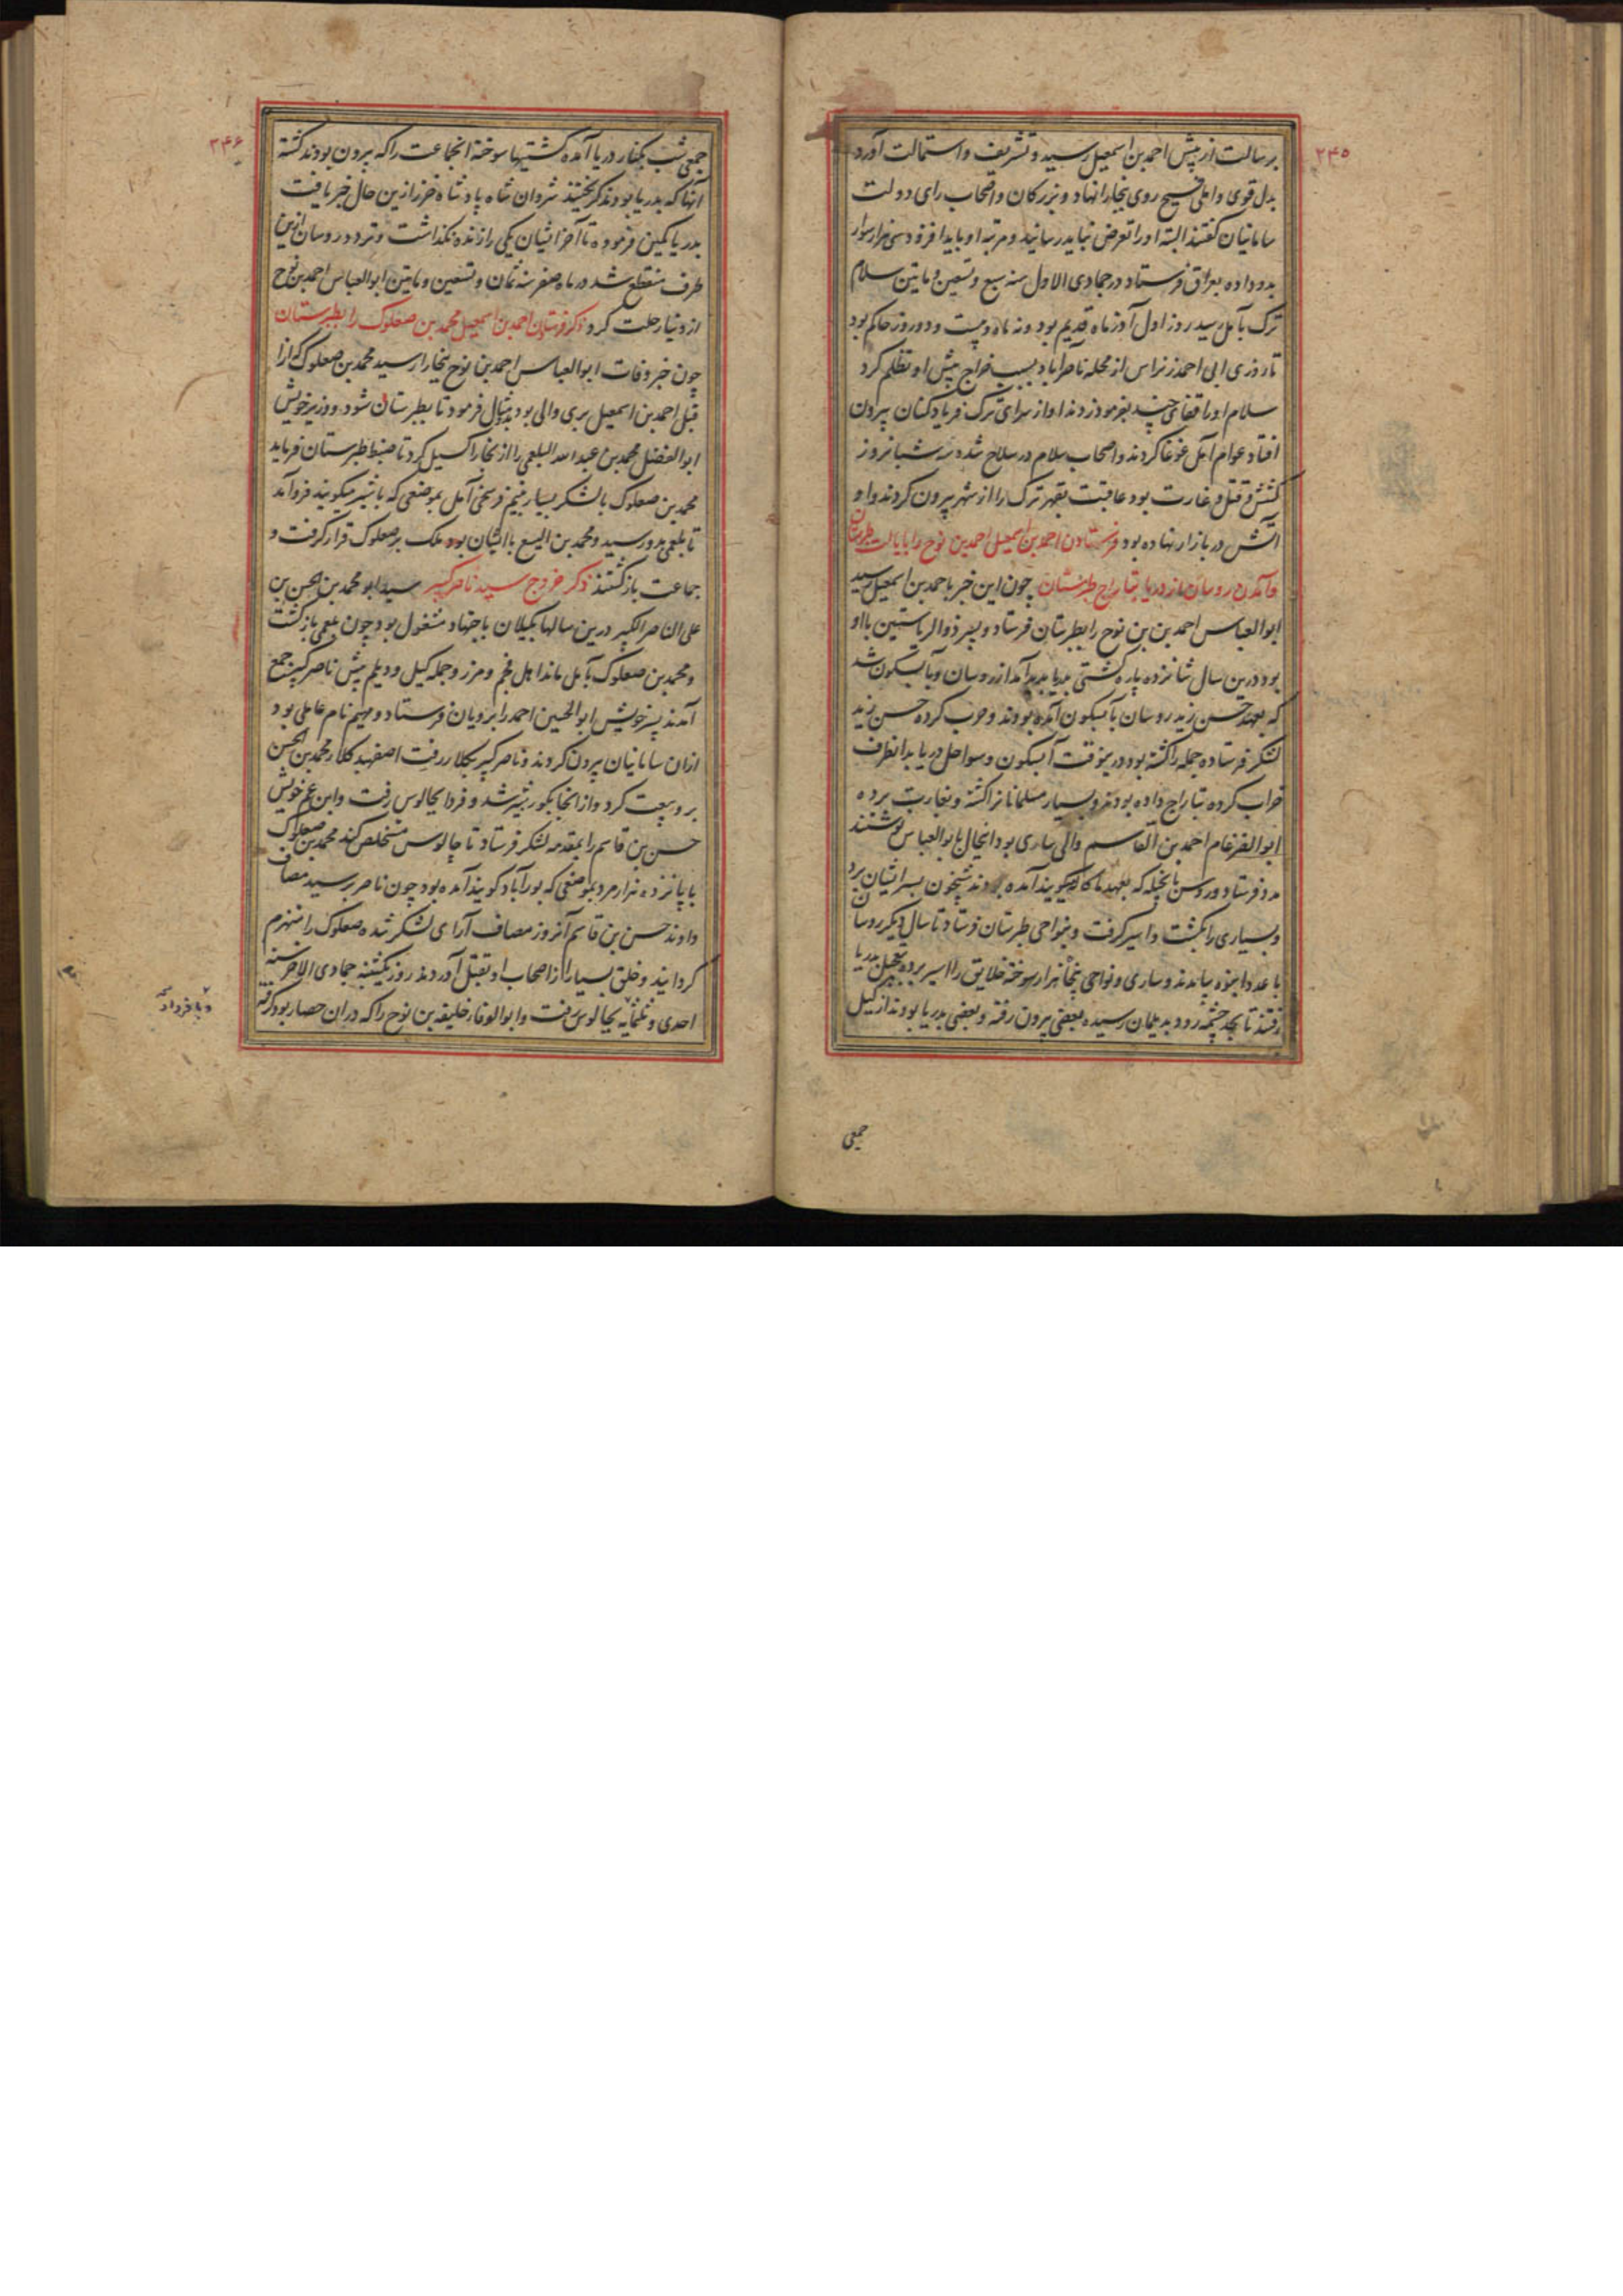 ۲۴۵
برسالت از پیش احمد بن اسمعیل رسید و تشریف و استمالت آورد
بدل قوی و املی فسیح روی ببخارا نهاد و بزرکان و اصحاب رای دولت
سامانیان کفتند البته او را تعرض نباید رسانید و مرتبه او باید افزود سی هزار سوار
بدو داده بعراق فرستاد در جمادی الاول سنه سبع و تسعین و مایتین سلام
ترک بآمل رسید روز اول آذر ماه قدیم بود و نه ماه و بیست و دو روز حاکم بود
تا روزی ابی احمد زنراس از محله ناصرآباد بسبب خراج پیش او تظلم کرد
سلام او را قفائی چند بفرمود زدند او از سرای ترک فریاد کنان بیرون
افتاد عوام آمل غوغا کردند و اصحاب سلام در سلاح شده سه شبانروز
کشش و قتل و غارت بود عاقبت بقهر ترک را از شهر بیرون کردند و او
آتش در بازار نهاده بود فرستادن احمد بن اسمعیل احمد بن نوح را بایالت طبرستان
و آمدن روسان از دریا بتاراج طبرستان چون این خبر باحمد بن اسمعیل رسید
ابوالعباس احمد بن بن نوح را بطبرستان فرستاد و پسر ذوالریاستین با او
بود درین سال شانزده پاره کشتی بدریا پدید آمد از روسان و بآبسکون شد
که بعهد حسن زید روسان بآبسکون آمده بودند و حرب کرده حسن زید
لشکر فرستاده جمله را کشته بود درینوقت آبسکون و سواحل دریا بدانطرف
خراب کرده بتاراج داده بودند و بسیار مسلمانانرا کشته و بغارت برده
ابوالضرغام احمد بن القاسم والی ساری بود اینحال بابوالعباس نوشتند
مدد فرستاد و روس بانجیله که بعهد ما کاله میکویند آمده بودند شبیخون بسر ایشان برد
و بسیاری را بکشت و اسیر کرفت و بنواحی طبرستان فرستاد تا سال دیکر روسان
با عدد انبوه بیامدند و ساری و نواحی پنجاهزار سوخته خلایق را اسیر برده بتعجیل بدریا
رفتند تا بحد چشمه رود بدیلمان رسیده بعضی بیرون رفته و بعضی بدریا بودند از کیل
جمعی
۲۴۶
جمعی شب بکنار دریا آمده کشتیها سوخته انجماعت را که بیرون بودند کشته
آنها که بدریا بودند کریختند شروان شاه پادشاه خزر ازین حال خبر یافت
بدریا کمین فرموده تا آخر ایشان یکی را زنده نکذاشت و تردد روسان ازین
طرف منقطع شد در ماه صفر سنه ثمان و تسعین و مایتین ابوالعباس احمد بن نوح
از دنیا رحلت کرد ذکر فرستادن احمد بن اسمعیل محمد بن صعلوک را بطبرستان
چون خبر وفات ابوالعباس احمد بن نوح ببخارا رسید محمد بن صعلوک که از
قبل احمد بن اسمعیل بری والی بود مثال فرمود تا بطبرستان شود و وزیر خویش
ابوالفضل محمد بن عبدالله البلعمی را از بخارا کسیل کرد تا ضبط طبرستان فرماید
محمد بن صعلوک با لشکر بسیار بنیم فرسخی آمل بموضعی که باشیر میکویند فرو آمد
تا بلعمی بدو رسید و محمد بن الیسع با ایشان بود ملک بر صعلوک قرار کرفت و
جماعت بازکشتند ذکر خروج سید ناصر کبیر سید ابو محمد بن الحسن بن
علی الناصر الکبیر درین سالها بکیلان باجتهاد مشغول بود چون بلعمی بازکشت
و محمد بن صعلوک بآمل ماند اهل فجم و مزر و جمله کیل و دیلم پیش ناصر کبیر جمع
آمدند پسر خویش ابوالحسین احمد را برویان فرستاد و مهیم نام عاملی بود
از ان سامانیان بیرون کردند و ناصر کبیر بکلار رفت اصفهبد کلار محمد بن الحسن
برو بیعت کرد و از انجا بکورشیر شد و فردا بچالوس رفت و ابن عم خویش
حسن بن قاسم را بمقدمه لشکر فرستاد تا چالوس مستخلص کند محمد بن صعلوک
با پانزده هزار مرد بموضعی که بورآباد کویند آمده بود چون ناصر برسید مصاف
دادند حسن بن قاسم آنروز مصاف آرای لشکر شده صعلوک را منهزم
کردانید و خلق بسیار را از اصحاب او بقتل آوردند روز یکشنبه جمادی الاخر سنه
احدی و ثلثمایه بچالوس رفت و ابوالوفا خلیفه بن نوح را که در ان حصار بود کرفته